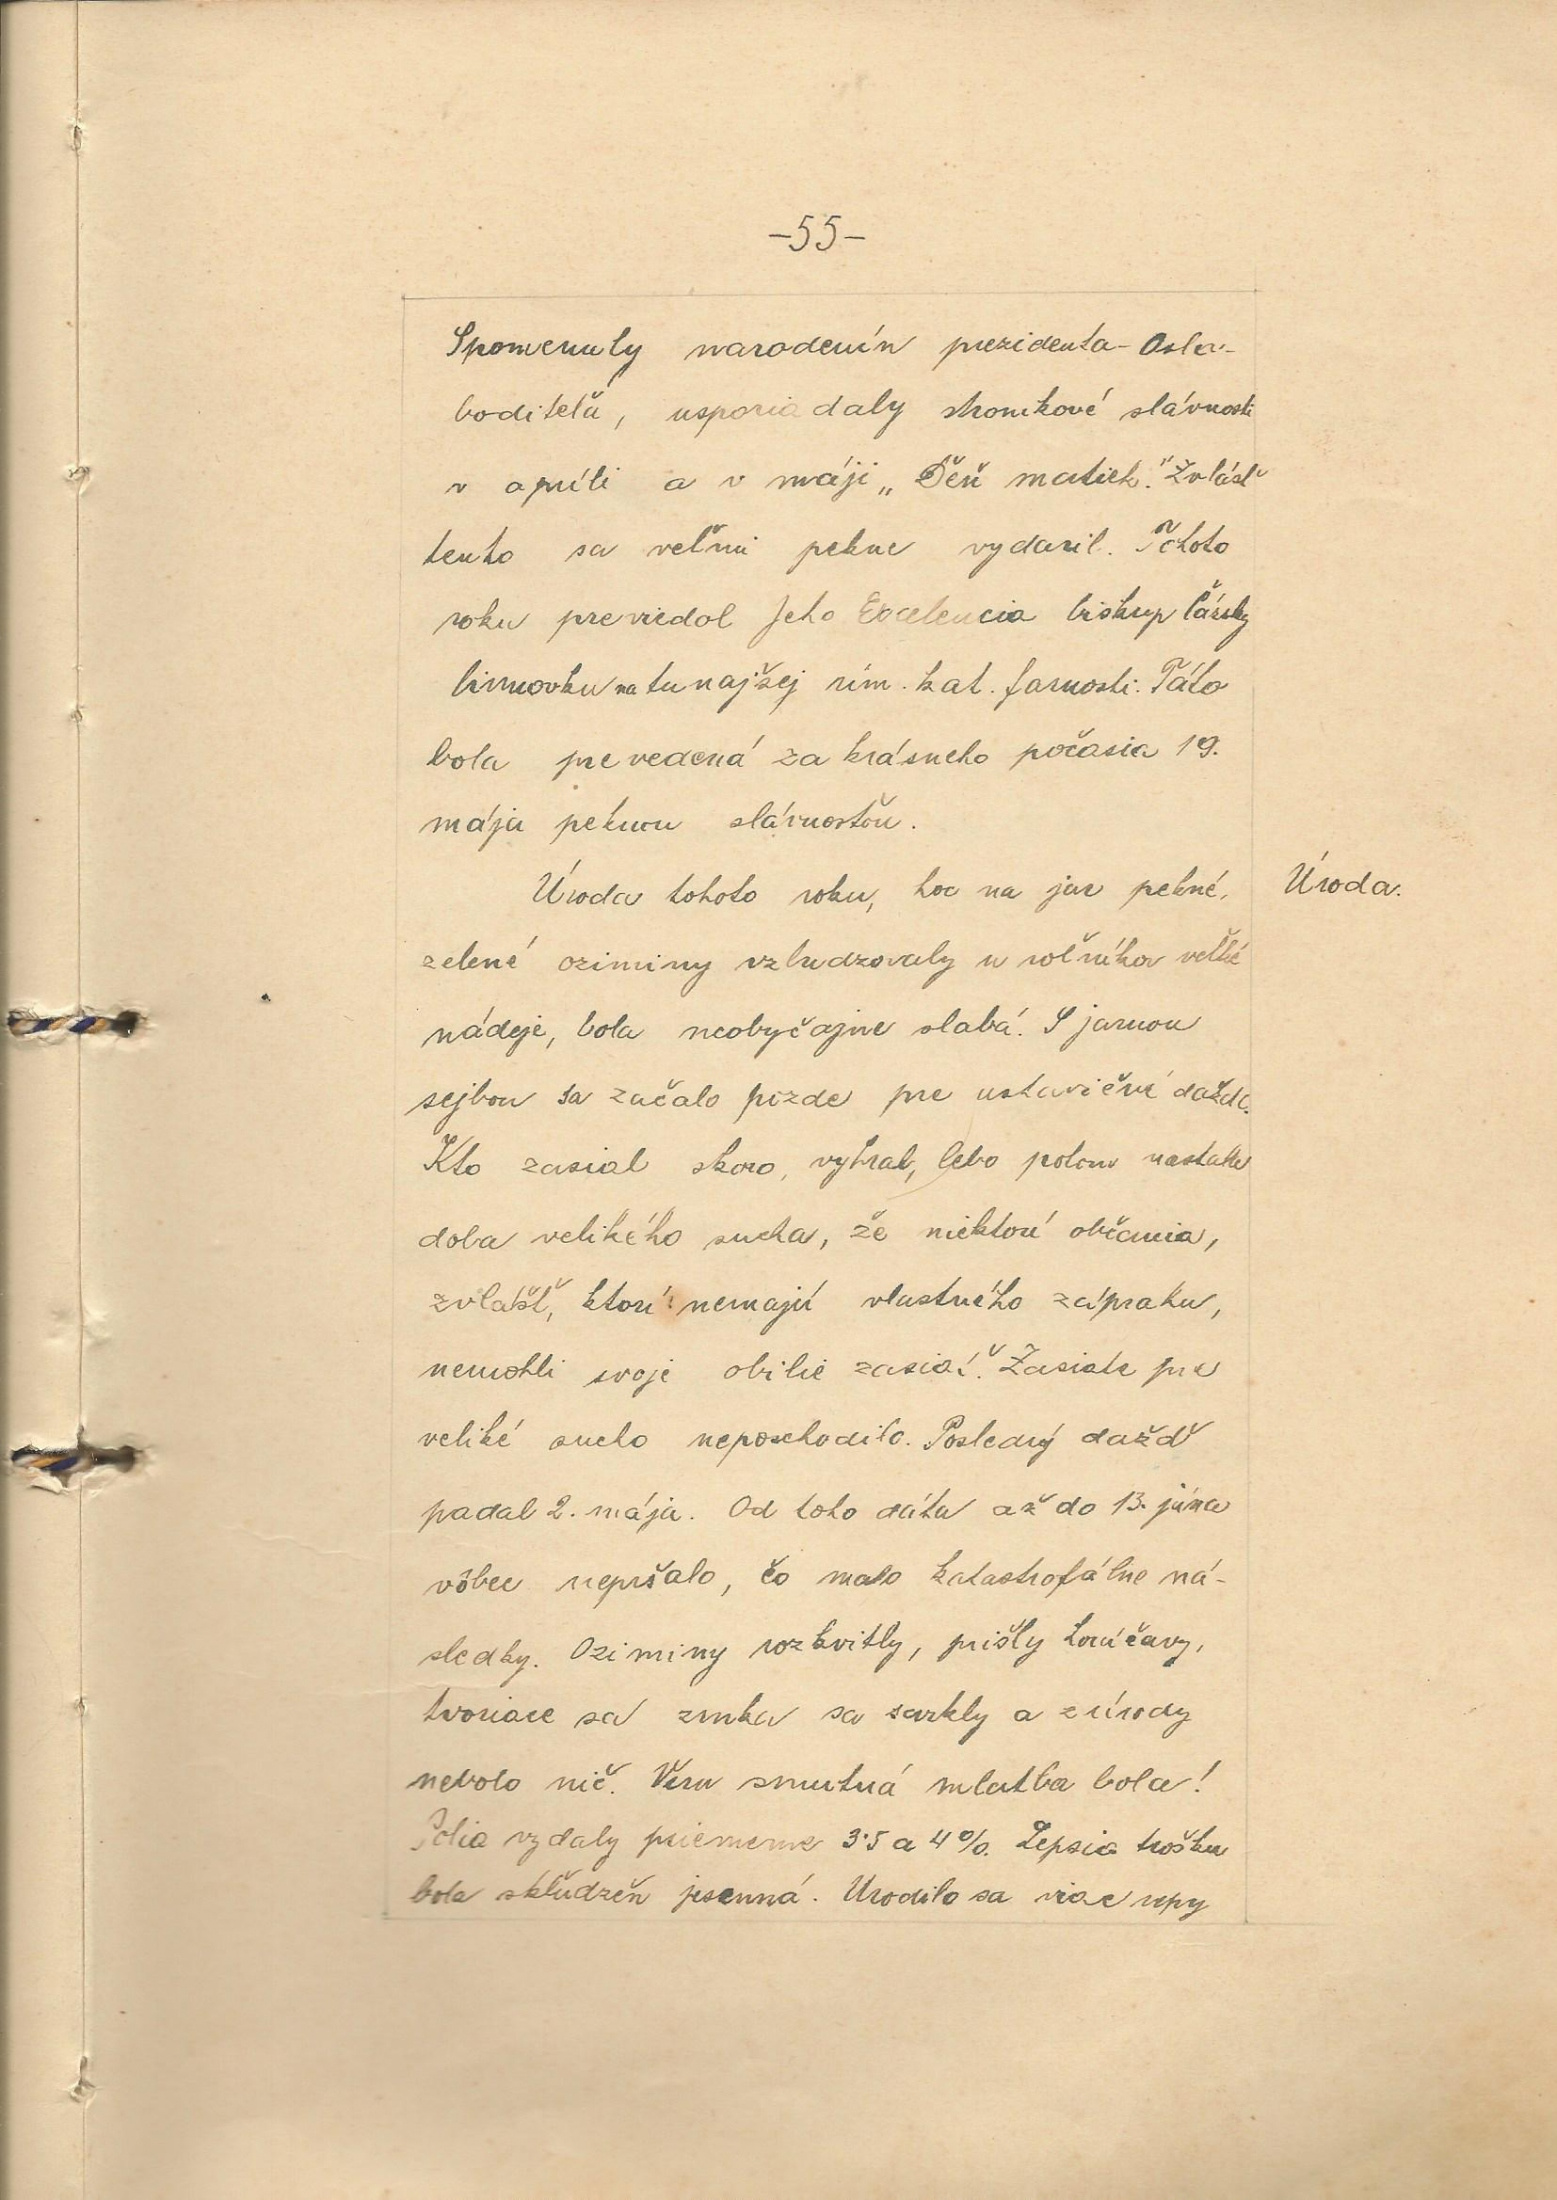 -55-
Spomenuly narodenín prezidenta-Oslo-
boditeľa, usporiadaly stromkové slávnosti
v apríli a v máji „Deň matiek." Zvlášť
tento sa veľmi pekne vydaril. Tohoto
roku previedol Jeho Excelencia biskup Čársky
birmovku na tunajšej rím. kat. farnosti. Táto
bola prevedená za krásneho počasia 19.
mája peknou slávnosťou.
Úroda tohoto roku, hoc na jar pekné, Úroda.
zelené oziminy vzbudzovaly u roľníkov veľké
nádeje, bola neobyčajne slabá. S jarnou
sejbou sa začalo pozde pre ustavičné dažde.
Kto zasial skoro, vyhral, lebo potom nastala
doba velikého sucha, že niektorí občania,
zvlášť, ktorí nemajú vlastného záprahu,
nemohli svoje obilie zasiať. Zasiate pre
veliké sucho neposchodilo. Posledný dážď
padal 2. mája. Od toho dáta až do 13. júna
vôbec nepršalo, čo malo katastrofálne ná-
sledky. Oziminy rozkvitly, prišly horúčavy,
tvoriace sa zrnka sa scvrkly a z úrody
nebolo nič. Veru smutná mlatba bola!
Polia vydaly priemerne 3·5 a 4%. Lepsia trošku
bola skľudzeň jesenná. Urodilo sa viac repy